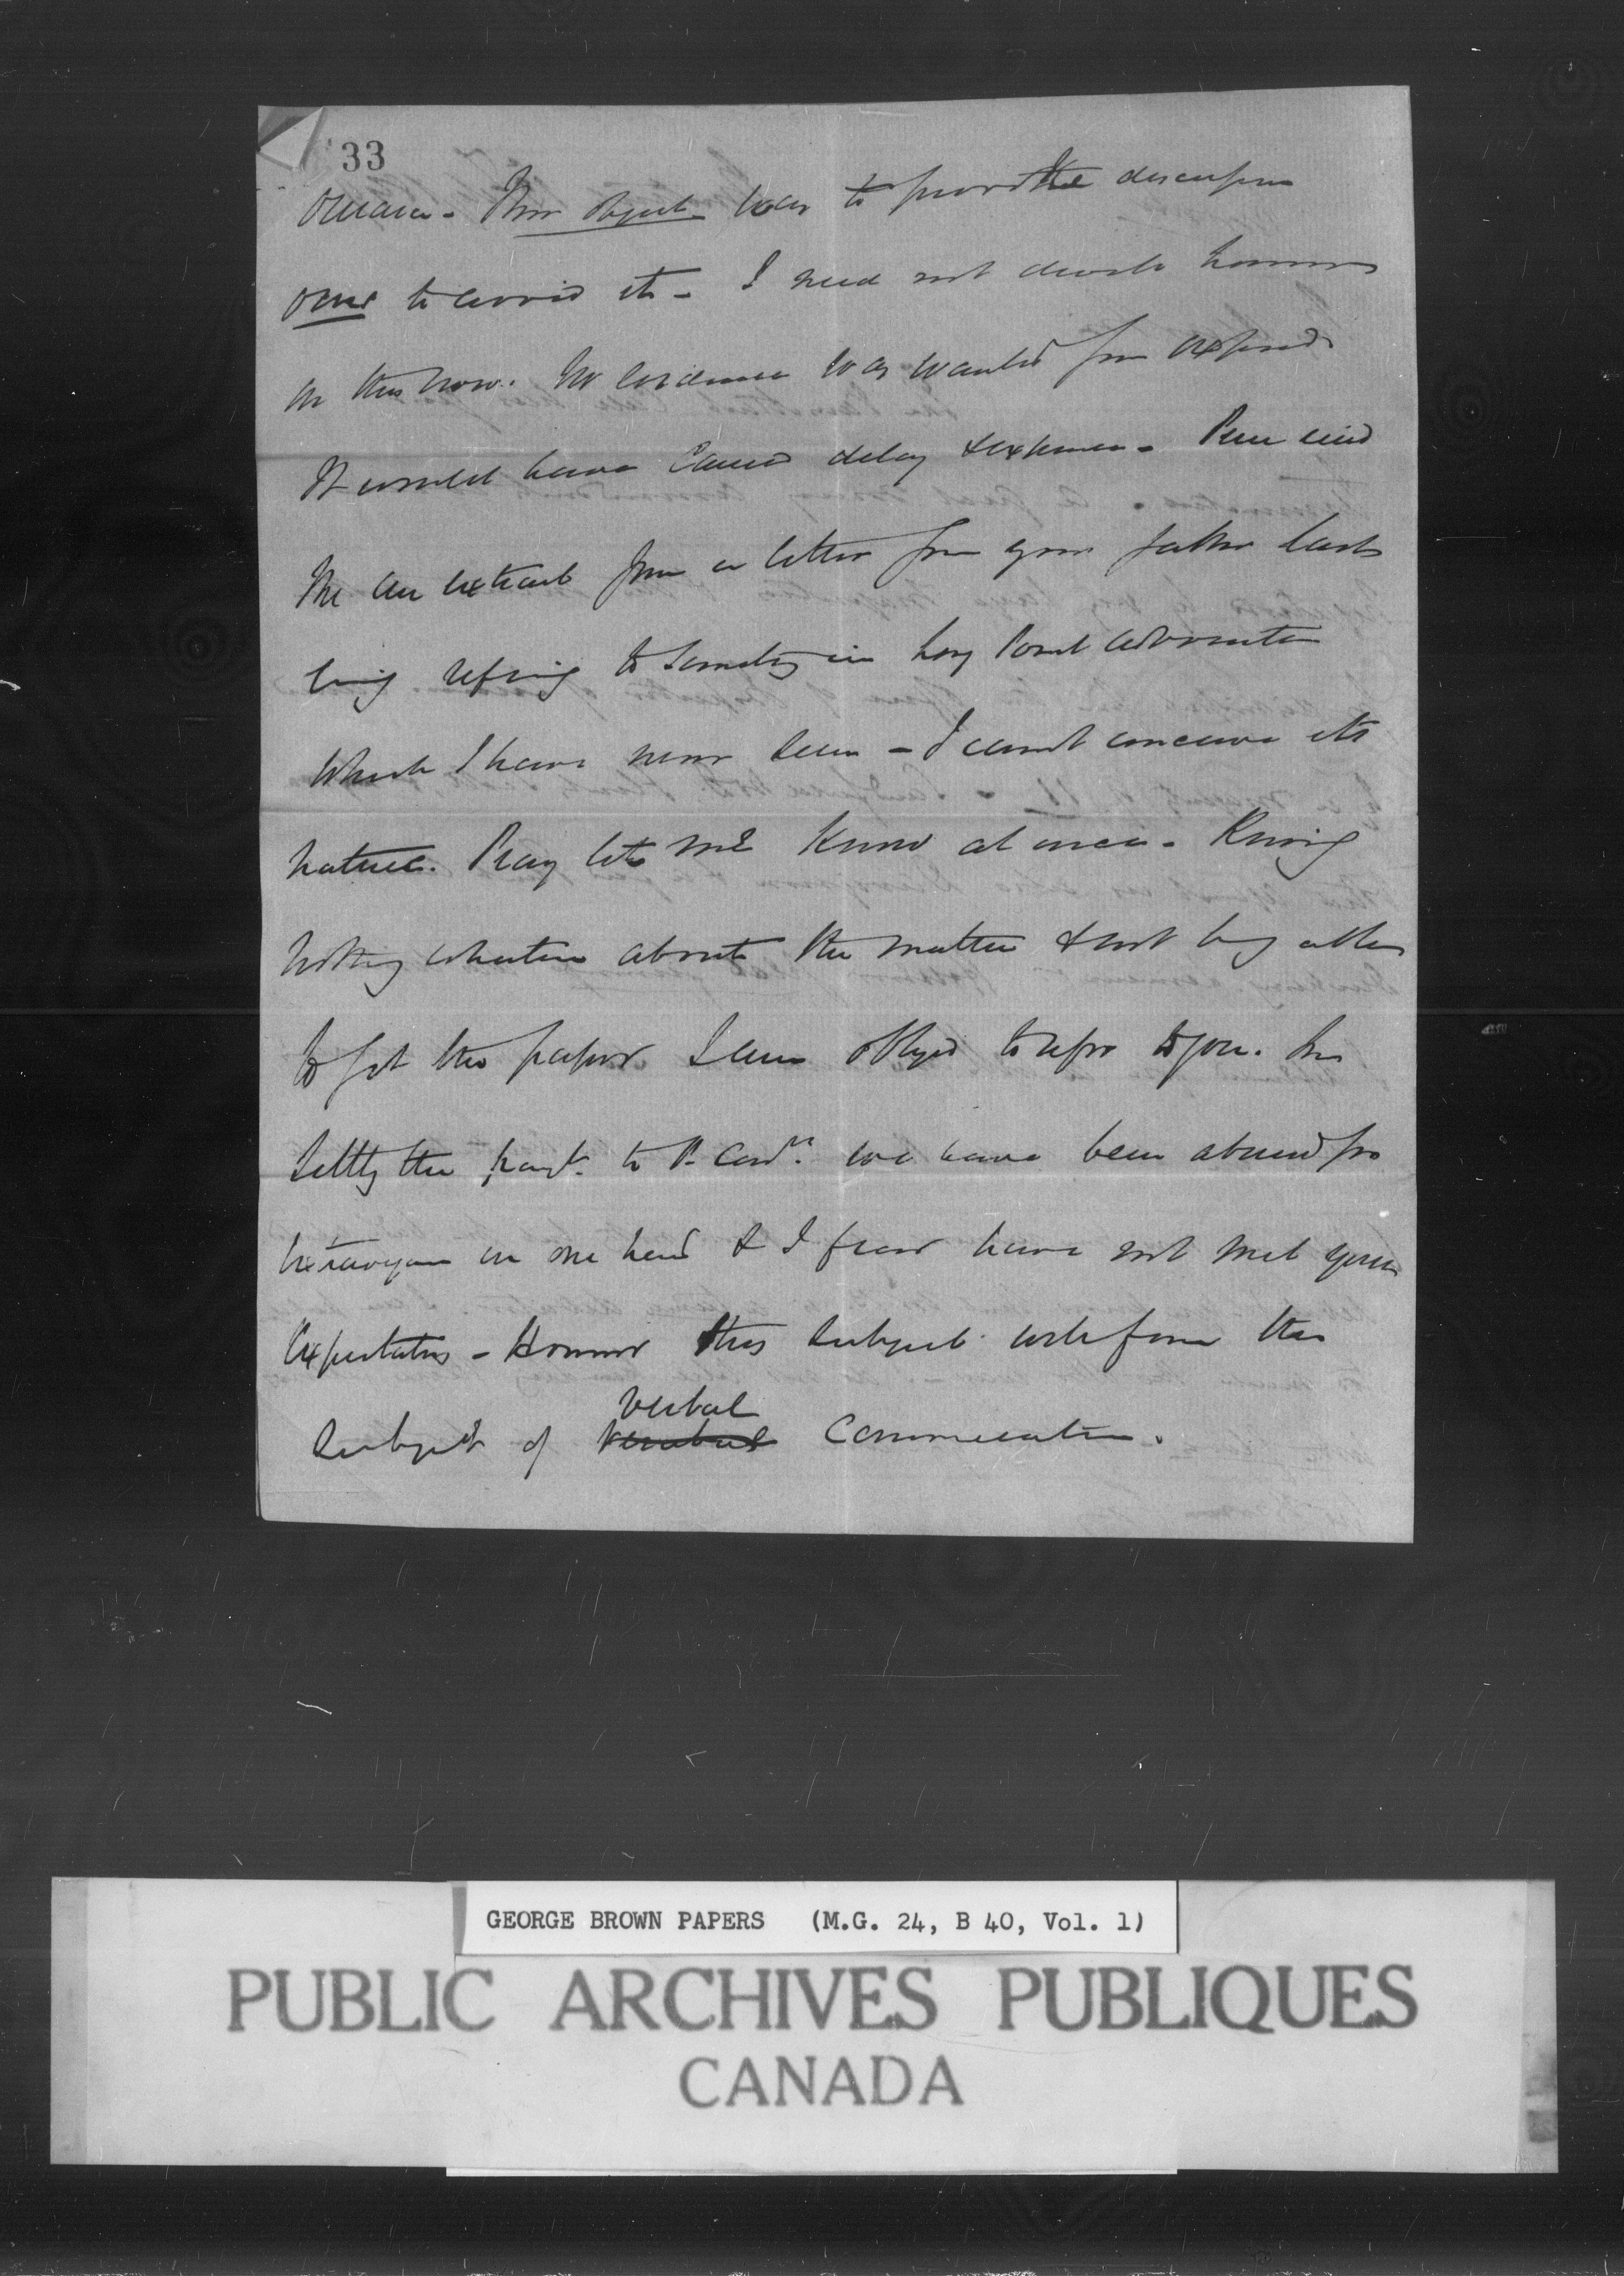 33
Their object was to provoke discussion
ours to avoid it - I need not dwell however
on this now. No evidence was wanted from
It would have caused delay & expense -
me an extract from a letter from your father
refering to something in
which I have never seen - I cannot conceive its
nature. Pray let me know at once - Knowing
nothing whatever about the matter & not being able
to get the paper I am obliged to refer to you. In
settling the paymt. to we have been abused for
extravagance on one hand & I fear have not met your
expectations - However this subject will form the
verbal
subject of communication.
GEORGE BROWN PAPERS (M.G. 24, B 40, Vol. 1)
PUBLIC ARCHIVES PUBLIQUES
CANADA